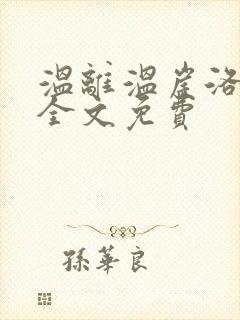 温離溫崖洛
全文免費
孫華良